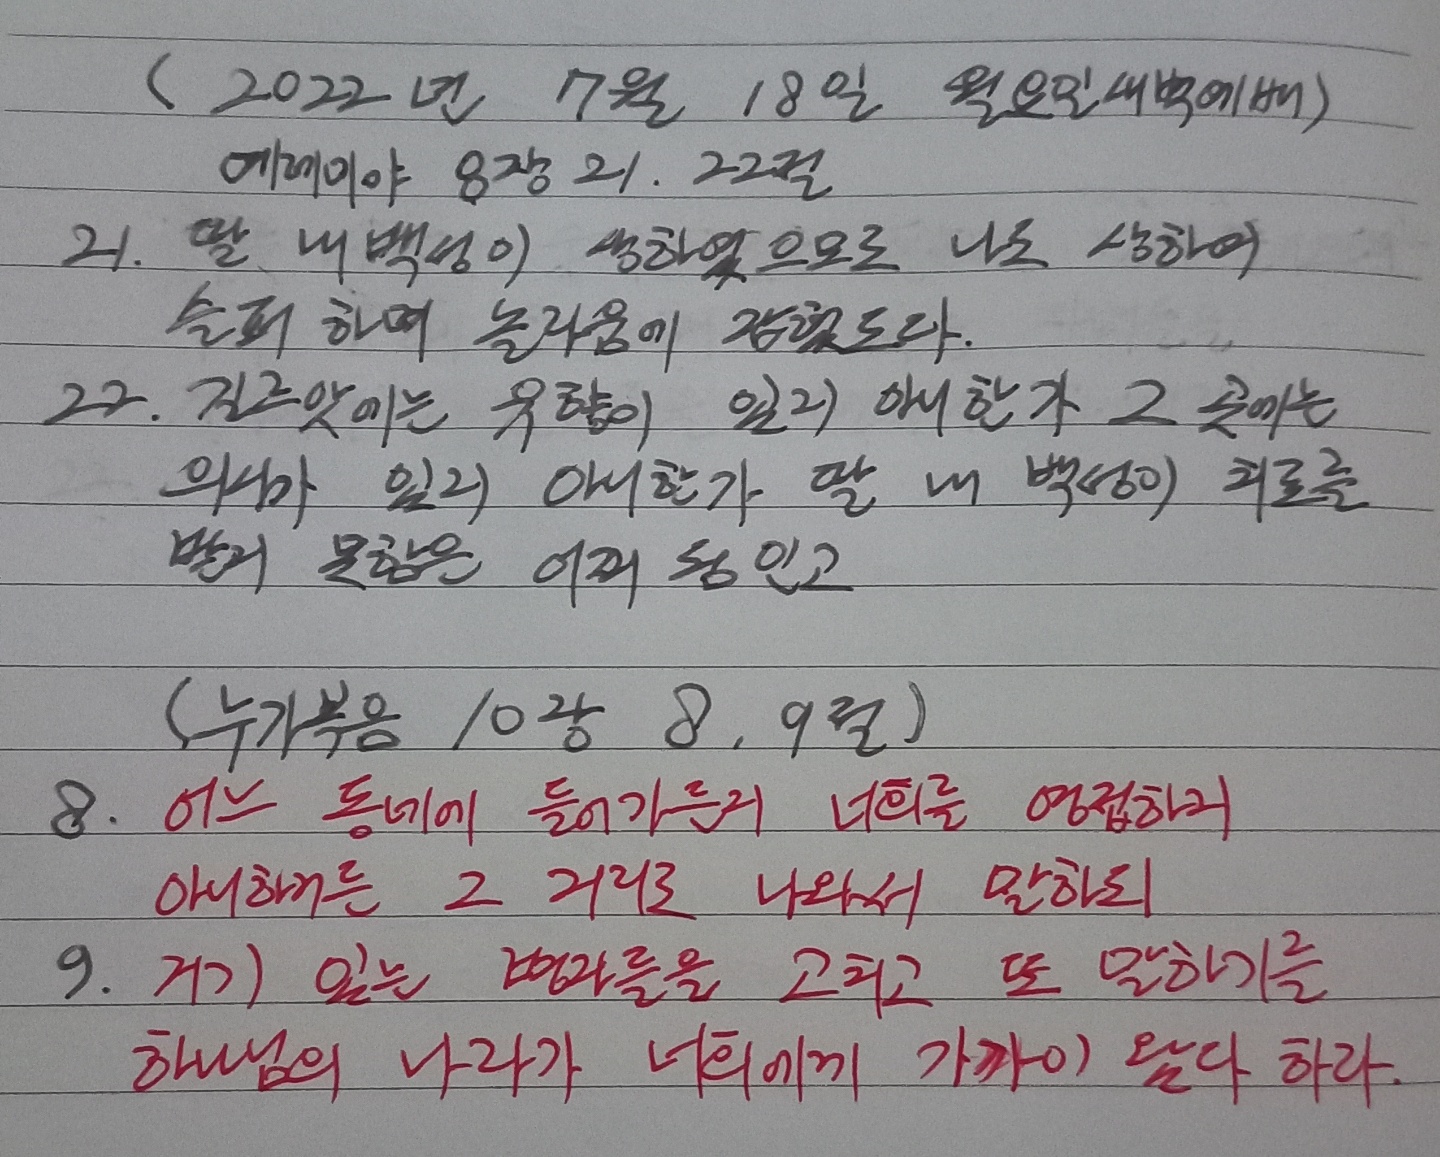 ( 2022년 7월 18일 월요일새벽예배)
예레미야 8장 21. 22절
21. 딸 내 백성이 상하였으므로 나도 상하여
슬퍼 하며 놀라움에 잡혔도다.
22. 길르앗에는 유향이 있지 아니한가 그 곳에는
의사가 있지 아니한가 딸 내 백성이 치료를
받지 못함은 어찌 됨인고
(누가복음 10장 8, 9절)
8. 어느 동네에 들어가든지 너희를 영접하지
아니하거든 그 거리로 나와서 말하되
9. 거기 있는 병자들을 고치고 또 말하기를
하나님의 나라가 너희에게 가까이 왔다 하라.